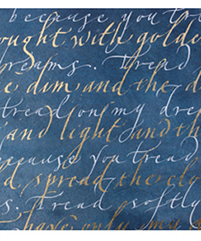 because you tr
ought with golde
dreams. Tread
e dim and the d
tread on my dre
and light and th
because you tread
d, spread
s. Tread softly
have only my